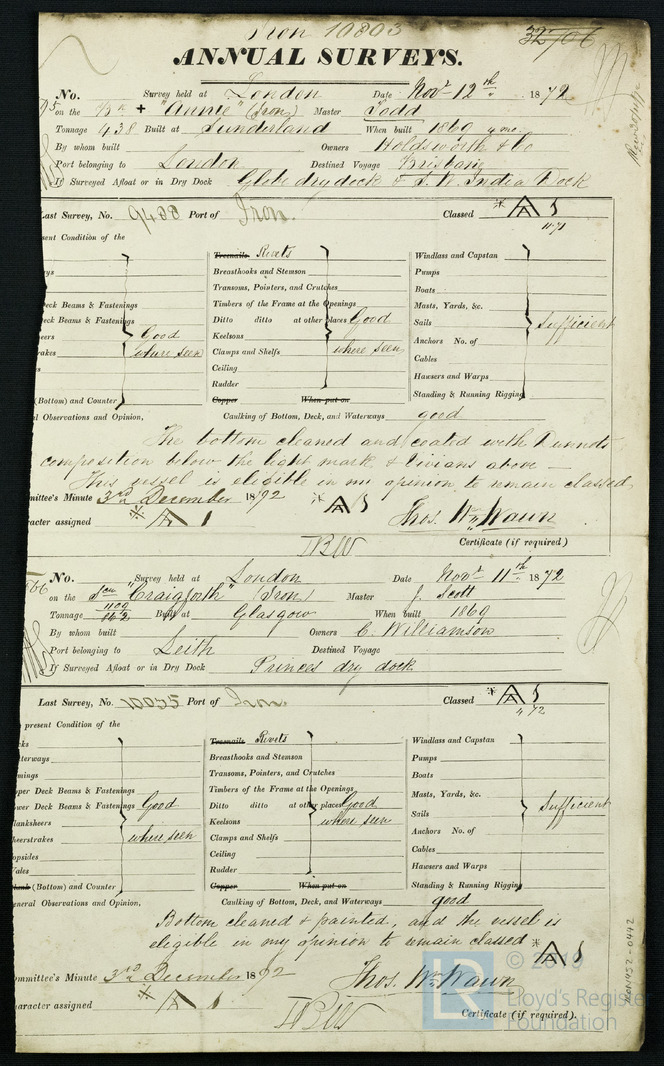 Iron 10803
32706
ANNUAL SURVEYS.
No. Survey held at London Date Novr 12th 1872
on the Bk + "Annie" (Iron) Master Todd
Tonnage 438 Built at Sunderland When built 1869
By whom built Owners Holdsworth & Co
Port belonging to London Destined Voyage Brisbane
If Surveyed Afloat or in Dry Dock Globe dry dock & S. W. India Dock
Last Survey, No. 9488 Port of Iron. Classed A 1
11.71
sent Condition of the
Treenails Rivets
Windlass and Capstan
Breasthooks and Stemson
Pumps
Transoms, Pointers, and Crutches
Boats
Deck Beams & Fastenings
Timbers of the Frame at the Openings
Masts, Yards, &c.
Deck Beams & Fastenings
Ditto ditto at other places Good
Sails Sufficient
eers Good
Keelsons
Anchors No. of
rakes where seen
Clamps and Shelfs where seen
Cables
Ceiling
Hawsers and Warps
Rudder
Standing & Running Rigging
(Bottom) and Counter
Copper When put on
l Observations and Opinion,
Caulking of Bottom, Deck, and Waterways good
The bottom cleaned and coated with
composition below the light mark & Vivians above
This vessel is eligible in my opinion to remain classed
mittee's Minute 3rd December 1872 A 1
racter assigned A 1 Thos. Wm Wawn
Certificate (if required)
No. Survey held at London Date Novr 11th 1872
on the Scw "Craigforth" (Iron) Master J. Scott
Tonnage 1109
862 Built at Glasgow When built 1869
By whom built Owners C. Williamson
Port belonging to Leith Destined Voyage
If Surveyed Afloat or in Dry Dock Princes dry dock
Last Survey, No. 10035 Port of Iron. Classed A 1
4.72
present Condition of the
cks
Treenails Rivets
Windlass and Capstan
terways
Breasthooks and Stemson
Pumps
mings
Transoms, Pointers, and Crutches
Boats
pper Deck Beams & Fastenings
Timbers of the Frame at the Openings
Masts, Yards, &c.
ower Deck Beams & Fastenings Good
Ditto ditto at other places Good
Sails Sufficient
lanksheers
Keelsons where seen
Anchors No. of
heerstrakes where seen
Clamps and Shelfs
Cables
opsides
Ceiling
Hawsers and Warps
Vales
Rudder
Standing & Running Rigging
lank (Bottom) and Counter
Copper When put on
eneral Observations and Opinion,
Caulking of Bottom, Deck, and Waterways good
Bottom cleaned & painted, and the vessel is
eligible in my opinion to remain classed A 1
ommittee's Minute 3rd December 1872
Thos. Wm Wawn
haracter assigned A 1
Certificate (if required).
LR
© 2019
Lloyd's Register
Foundation